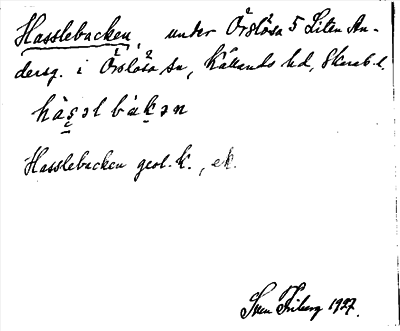 Hasslebacken, under Örslösa 5 Liten An-
dersg. i Örslösa sn, Kållands hd, Skarab. l.
hàsəl bàkən
Hasslebacken geol. k., ek.
Sven Friberg 1927.